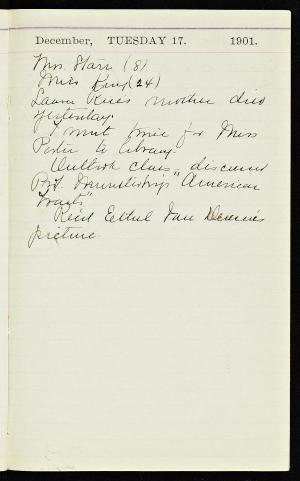 December, TUESDAY 17. 1901.
Mrs. Starr (8)
Miss King (24)
Laura mother died
yesterday.
I went for Miss
Porter to library.
Outlook class, discussed
Prof. "American
Traits"
Rec'd Ethel Van
picture.